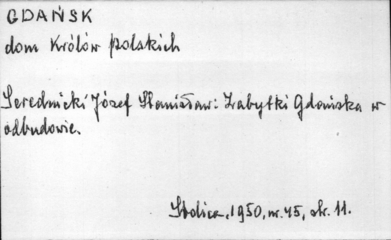 GDAŃSK
dom Królów polskich
Serednicki Józef Stanisław: Zabytki Gdańska w
odbudowie.
Stolica, 1950, nr. 45, str. 11.